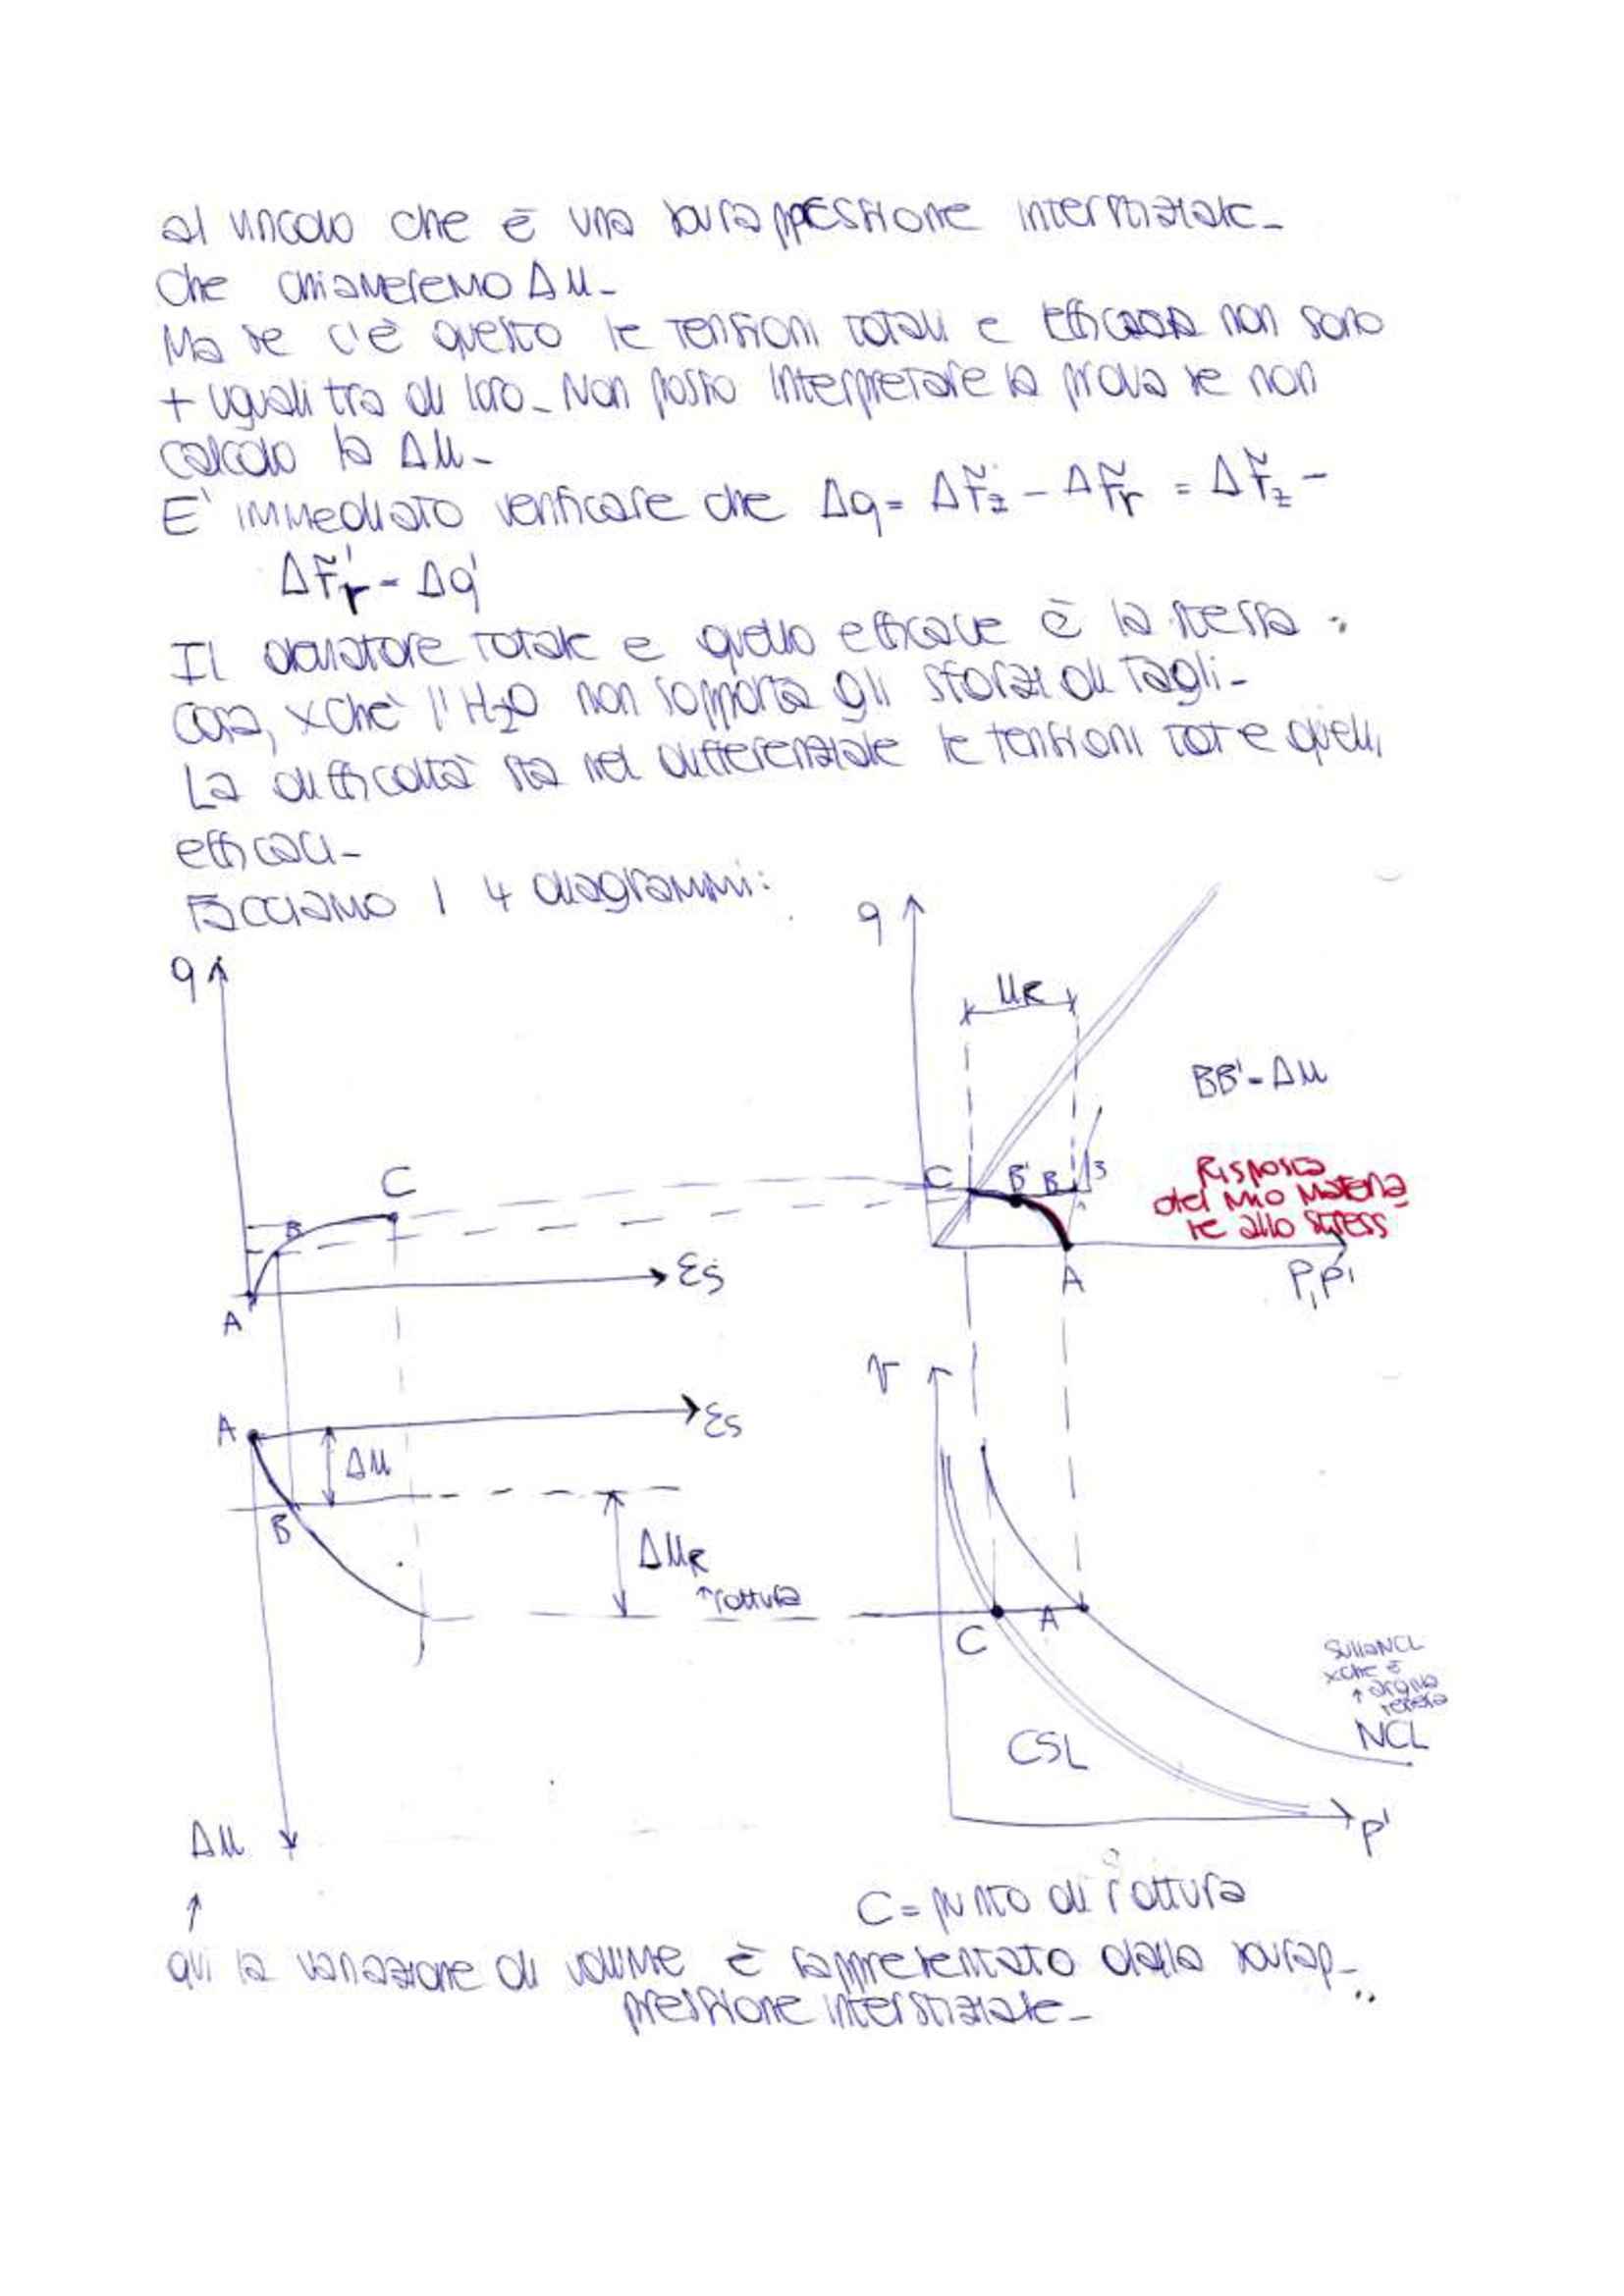 al vincolo che è una sovrappressione interstiziale_
che chiameremo Δu_
Ma se c'è questo le tensioni totali e efficaci non sono
+ uguali tra di loro_ Non posso interpretare la prova se non
calcolo la Δu_
E' immediato verificare che Δq = Δσ̃z - Δσ̃r = Δσ̃z -
Δσ̃'r = Δq'
Il deviatore totale e quello efficace è la stessa
cosa, xchè l'H2O non sopporta gli sforzi di tagli_
La difficoltà sta nel differenziale le tensioni tot e quelli
efficaci_
Facciamo i 4 diagrammi:
q
q
uR
BB'=Δu
C
B
A
εs
C B' B 3
Risposta
del mio materia
le allo stress
A
P, P'
A
εs
Δu
B
ΔuR
↑rottura
v
C
A
Sulla NCL
xche è
↑ argilla
NCL
CSL
P'
Δu
↑
C = punto di rottura
qui la variazione di volume è rappresentato dalla sovrap_
pressione interstiziale_